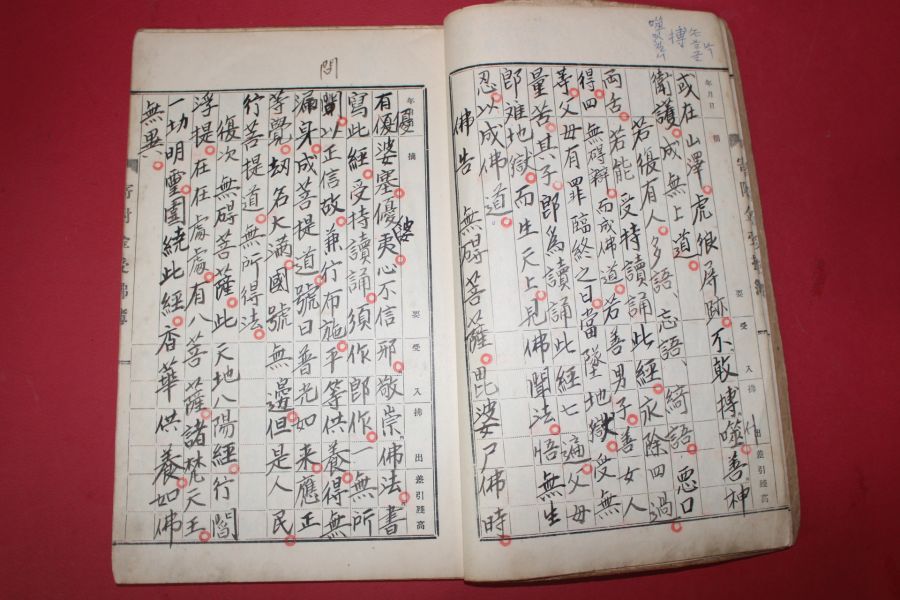 搏
年月日
摘
要
受入
拂出
差引殘高
或在山澤虎狼屏跡不敢搏噬善神
衛護成無上道
若復有人多語忘語綺語惡口
兩舌若能受持讀誦此經永除四過
得四無碍辯而成佛道若善男子善女人
等父母有罪臨終之日當墜地獄受無
量苦其子郎為讀誦此經七遍父母
郎难地獄而生天上見佛聞法悟無生
忍以成佛道
佛告無碍菩薩毘婆尸佛時
問
年
摘
要
受入
拂出
差引殘高
有優婆塞優婆夷心不信邪敬崇佛法書
寫此經受持讀誦須作郎作一無所
問以正信敬兼行布施平等供養得無
漏身成菩提道號曰普光如来應正
等覺劫名大滿國號無邊但是人民
行菩提道無所得法
復次無碍菩薩此天地八陽經行閻
浮提在在處處有八菩薩諸梵天王
一切明靈圍繞此經香華供養如佛
無異